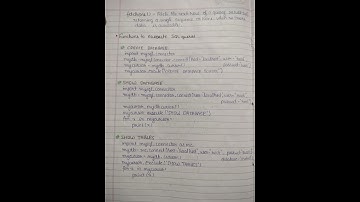 fetchone() - Fetch the next row of a query result set
returning a single sequence or None when no more
data is available.
Functions to execute SQL queries
# CREATE DATABASE
import mysql.connector
mydb = mysql.connector.connect(host="localhost", user="root",
mycursor = mydb.cursor()
mycursor.execute("CREATE DATABASE
# SHOW DATABASE
import mysql.connector
mydb = mysql.connector.connect(host="localhost", user="root",
mycursor = mydb.cursor()
mycursor.execute("SHOW DATABASES")
for x in mycursor:
print(x)
# SHOW TABLES
import mysql.connector as mc
mydb = mc.connect(host="localhost", user="root",
mycursor = mydb.cursor()
mycursor.execute("SHOW TABLES")
for x in mycursor:
print(x)